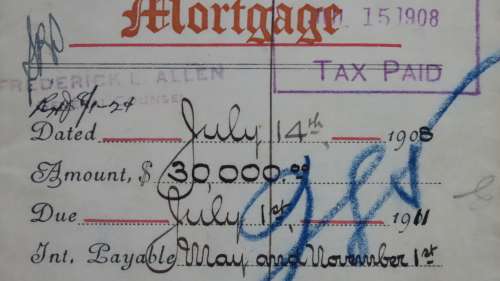 Mortgage
15 1908
TAX PAID
FREDERICK L. ALLEN
COUNSEL
Dated July 14th 1908
Amount, $ 30,000.00
Due July 1st, 1911
Int. Payable May and November 1st